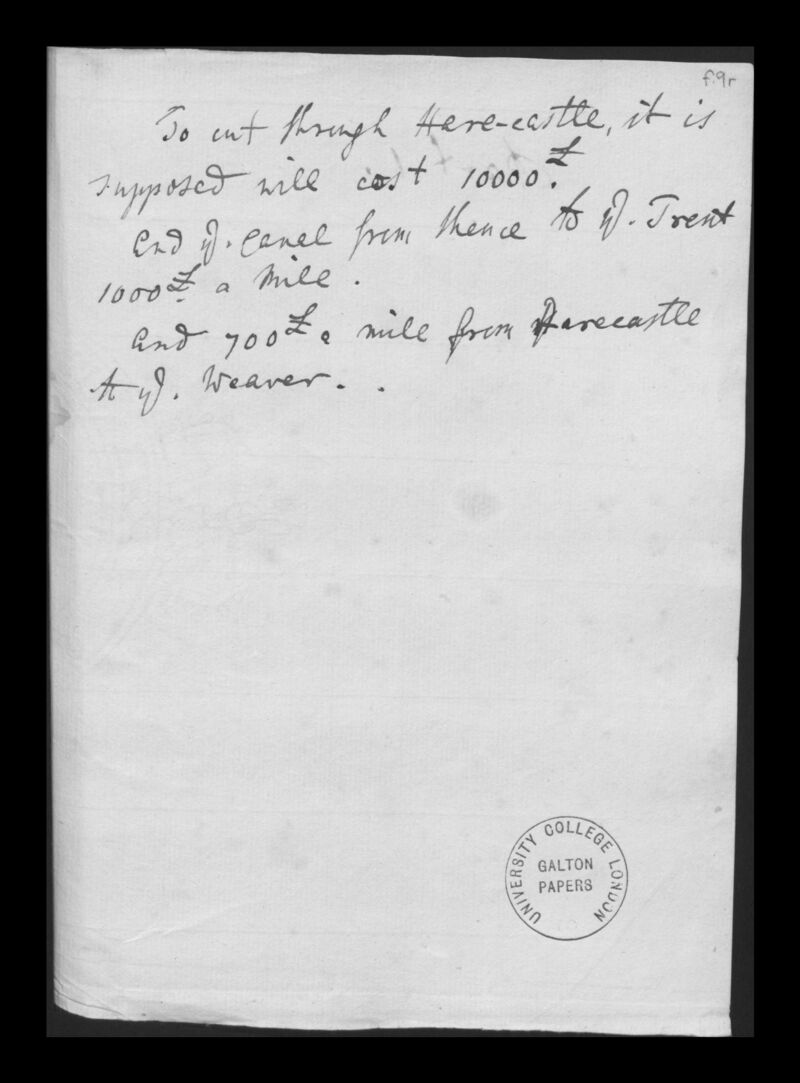 f.9r
To cut through Hare-castle, it is
supposed will cost 10000.£
And ye. canal from thence to ye. Trent
1000£. a mile.
And 700£ a mile from Harecastle
to ye. Weaver. .
UNIVERSITY COLLEGE LONDON
GALTON
PAPERS